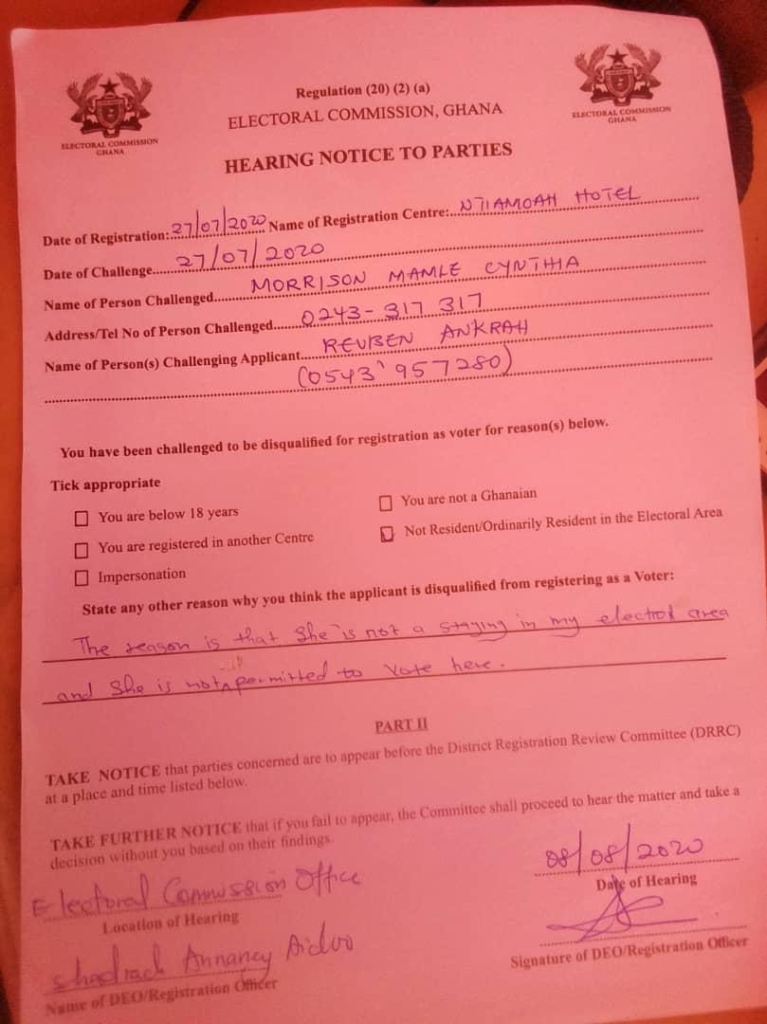 Regulation (20) (2) (a)
ELECTORAL COMMISSION, GHANA
ELECTORAL COMMISSION
GHANA
ELECTORAL COMMISSION
GHANA
HEARING NOTICE TO PARTIES
Date of Registration: 27/07/2020 Name of Registration Centre: NTIAMOAH HOTEL
Date of Challenge 27/07/2020
Name of Person Challenged MORRISON MAMLE CYNTHIA
Address/Tel No of Person Challenged 0243-317 317
Name of Person(s) Challenging Applicant REUBEN ANKRAH
(0543 957280)
You have been challenged to be disqualified for registration as voter for reason(s) below.
Tick appropriate
You are below 18 years
You are not a Ghanaian
You are registered in another Centre
Not Resident/Ordinarily Resident in the Electoral Area
Impersonation
State any other reason why you think the applicant is disqualified from registering as a Voter:
The reason is that She is not a staying in my electral area
and She is not permitted to vote here.
PART II
TAKE NOTICE that parties concerned are to appear before the District Registration Review Committee (DRRC)
at a place and time listed below.
TAKE FURTHER NOTICE that if you fail to appear, the Committee shall proceed to hear the matter and take a
decision without you based on their findings.
Electoral Commission Office
Location of Hearing
08/08/2020
Date of Hearing
Shadrach Annancy Aidoo
Name of DEO/Registration Officer
Signature of DEO/Registration Officer